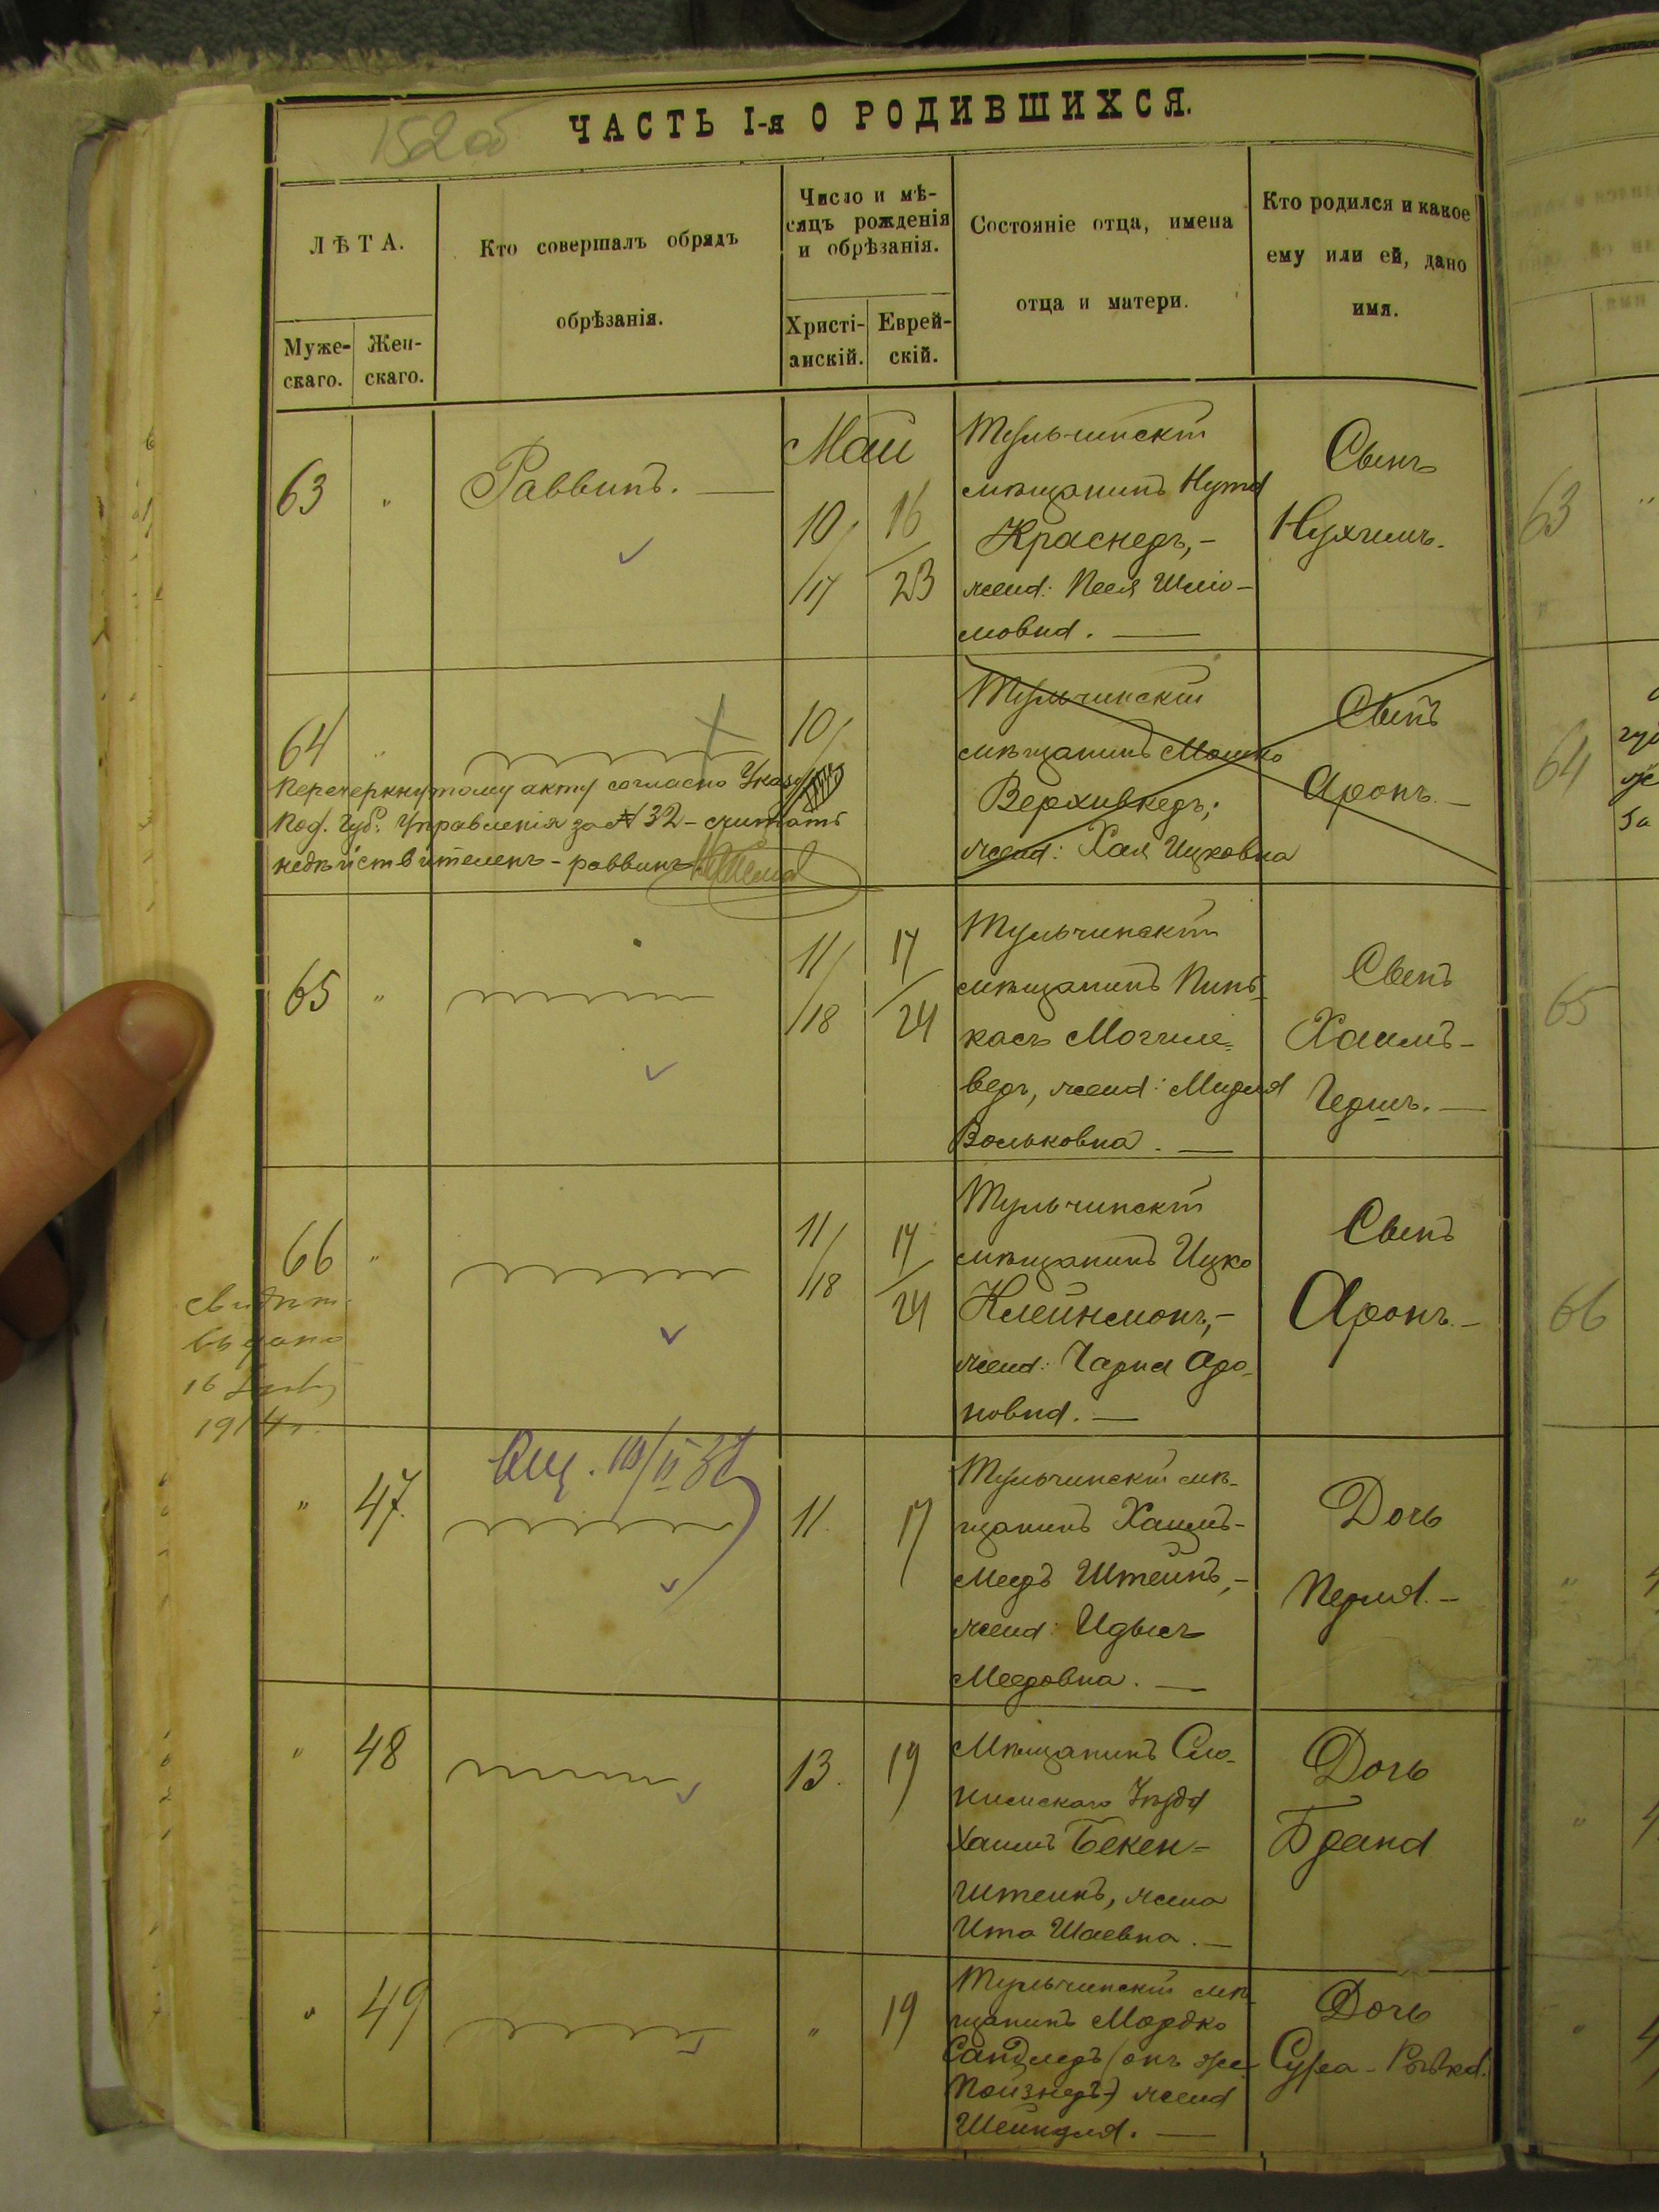 152об
ЧАСТЬ I-я О РОДИВШИХСЯ.
ЛѢТА.
Муже-
скаго.
Жен-
скаго.
Кто совершалъ обрядъ
обрѣзанія.
Число и мѣ-
сяцъ рожденія
и обрѣзанія.
Христі-
анскій.
Еврей-
скій.
Состояніе отца, имена
отца и матери.
Кто родился и какое
ему или ей, дано
имя.
63
"
Раввинъ. —
Май
10/
/17
16/
23
Тульчинскій
мѣщанинъ Нута
Краснеръ,-
жена: Песя Шлiо-
мовна. —
Сынъ
Нухимъ.
64
"
10/
Тульчинскій
мѣщанинъ Мошко
Верхивкеръ;
жена: Хая Ицковна
Сынъ
Аронъ. —
Перечеркнутому акту согласно Указу
Под. Губ. Управленія за № 32 - считать
недѣйствителенъ - раввинъ
65
"
11/
/18
17/
24
Тульчинскій
мѣщанинъ Пинь-
касъ Могиле-
веръ, жена: Мирля
Вольковна. —
Сынъ
Хаимъ-
Гершъ. —
66
"
11/
/18
17/
24
Тульчинскій
мѣщанинъ Ицко
Клейнмонъ,-
жена: Чарна Аро-
новна. —
Сынъ
Аронъ. —
Свидѣт.
выдано
16
1914 г.
"
47.
11.
17
Тульчинскій мѣ-
щанинъ Хаимъ-
Мееръ Штейнъ,-
жена: Идысъ
Мееровна. —
Дочь
Перля. —
"
48
13.
19
Мѣщанинъ Сло-
нимскаго
Хаимъ Бекен-
штейнъ, жена
Ита Шаевна. —
Дочь
Брана
"
49
"
19
Тульчинскій мѣ-
щанинъ Мордко
Сандлеръ (онъ же
Пойзнеръ) жена
Шейндля. —
Дочь
Сура-Ривка.
63
"
64
65
66